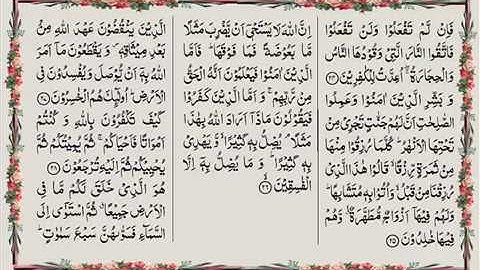 فَاِنْ لَّمْ تَفْعَلُوْا وَلَنْ تَفْعَلُوْا
فَاتَّقُوا النَّارَ الَّتِيْ وَقُوْدُهَا النَّاسُ
وَالْحِجَارَةُ ۚ اُعِدَّتْ لِلْكٰفِرِيْنَ ﴿۲۴﴾
وَ بَشِّرِ الَّذِيْنَ اٰمَنُوْا وَعَمِلُوا
الصّٰلِحٰتِ اَنَّ لَهُمْ جَنّٰتٍ تَجْرِيْ مِنْ
تَحْتِهَا الْاَنْهٰرُ ؕ كُلَّمَا رُزِقُوْا مِنْهَا
مِنْ ثَمَرَةٍ رِّزْقًا ۙ قَالُوْا هٰذَا الَّذِيْ
رُزِقْنَا مِنْ قَبْلُ ۙ وَاُتُوْا بِهٖ مُتَشَابِهًا ؕ
وَلَهُمْ فِيْهَاۤ اَزْوَاجٌ مُّطَهَّرَةٌ ۙ وَّهُمْ
فِيْهَا خٰلِدُوْنَ ﴿۲۵﴾
اِنَّ اللّٰهَ لَا يَسْتَحْيٖۤ اَنْ يَّضْرِبَ مَثَلًا
مَّا بَعُوْضَةً فَمَا فَوْقَهَا ؕ فَاَمَّا
الَّذِيْنَ اٰمَنُوْا فَيَعْلَمُوْنَ اَنَّهُ الْحَقُّ
مِنْ رَّبِّهِمْ ۚ وَ اَمَّا الَّذِيْنَ كَفَرُوْا
فَيَقُوْلُوْنَ مَاذَاۤ اَرَادَ اللّٰهُ بِهٰذَا
مَثَلًا ۘ يُضِلُّ بِهٖ كَثِيْرًا ۙ وَّيَهْدِيْ
بِهٖ كَثِيْرًا ؕ وَ مَا يُضِلُّ بِهٖۤ اِلَّا
الْفٰسِقِيْنَ ﴿۲۶﴾
الَّذِيْنَ يَنْقُضُوْنَ عَهْدَ اللّٰهِ مِنْۢ
بَعْدِ مِيْثَاقِهٖ ۪ وَيَقْطَعُوْنَ مَاۤ اَمَرَ
اللّٰهُ بِهٖۤ اَنْ يُّوْصَلَ وَيُفْسِدُوْنَ فِي
الْاَرْضِ ؕ اُولٰٓئِكَ هُمُ الْخٰسِرُوْنَ ﴿۲۷﴾
كَيْفَ تَكْفُرُوْنَ بِاللّٰهِ وَ كُنْتُمْ
اَمْوَاتًا فَاَحْيَاكُمْ ۚ ثُمَّ يُمِيْتُكُمْ ثُمَّ
يُحْيِيْكُمْ ثُمَّ اِلَيْهِ تُرْجَعُوْنَ ﴿۲۸﴾
هُوَ الَّذِيْ خَلَقَ لَكُمْ مَّا فِي
الْاَرْضِ جَمِيْعًا ٭ ثُمَّ اسْتَوٰۤى اِلَى
السَّمَآءِ فَسَوّٰىهُنَّ سَبْعَ سَمٰوٰتٍ ؕ